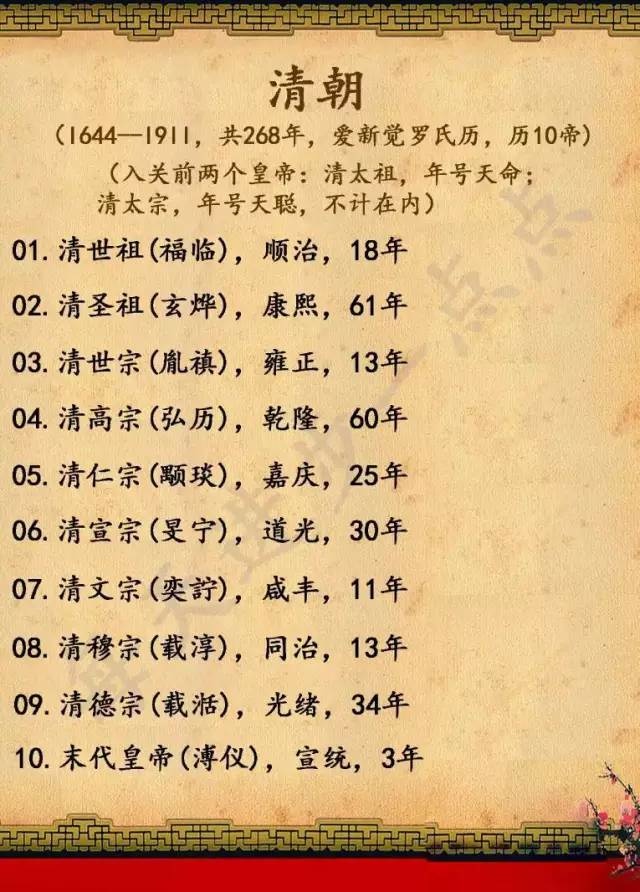 清朝
(1644—1911，共268年，爱新觉罗氏历，历10帝)
(入关前两个皇帝：清太祖，年号天命；
清太宗，年号天聪，不计在内)
01.清世祖(福临)，顺治，18年
02.清圣祖(玄烨)，康熙，61年
03.清世宗(胤禛)，雍正，13年
04.清高宗(弘历)，乾隆，60年
05.清仁宗(颙琰)，嘉庆，25年
06.清宣宗(旻宁)，道光，30年
07.清文宗(奕詝)，咸丰，11年
08.清穆宗(载淳)，同治，13年
09.清德宗(载湉)，光绪，34年
10.末代皇帝(溥仪)，宣统，3年
每天进步一点点